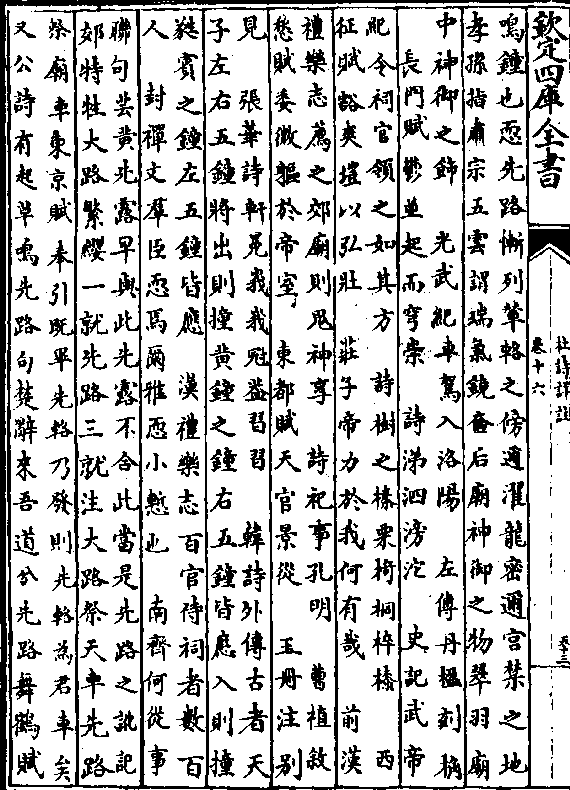 欽定四庫全書
杜詩詳註
卷十六
鳴鐘也恧先路慚列輦輅之傍邇濯龍密邇宫禁之地
孝孫指肅宗五雲謂瑞氣鏡奩后廟神御之物翠羽廟
中神御之飾　光武紀車駕入洛陽　左傳丹楹刻桷
長門賦鬱並起而穹崇　詩涕泗滂沱　史記武帝
紀令祠官領之如其方　詩樹之榛栗椅桐梓榛　西
征賦豁爽塏以弘壯　莊子帝力於我何有哉　前漢
禮樂志薦之郊廟則鬼神享　詩祀事孔明　曹植敘
愁賦委微軀於帝室　東都賦天官景從　玉册注别
見　張華詩軒冕峩峩冠蓋習習　韓詩外傳古者天
子左右五鐘將出則撞黄鐘之鐘右五鐘皆應入則撞
蕤賓之鐘左五鐘皆應　漢禮樂志百官侍祠者數百
人　封禪文羣臣恧焉爾雅恧小慙也　南齊何從事
聯句芸黄先露早與此先露不合此當是先路之訛記
郊特牲大路繁纓一就先路三就注大路祭天車先路
祭廟車東京賦奉引既畢先輅乃發則先輅為君車矣
又公詩有起草鳴先路句楚辭來吾道兮先路舞鶴賦